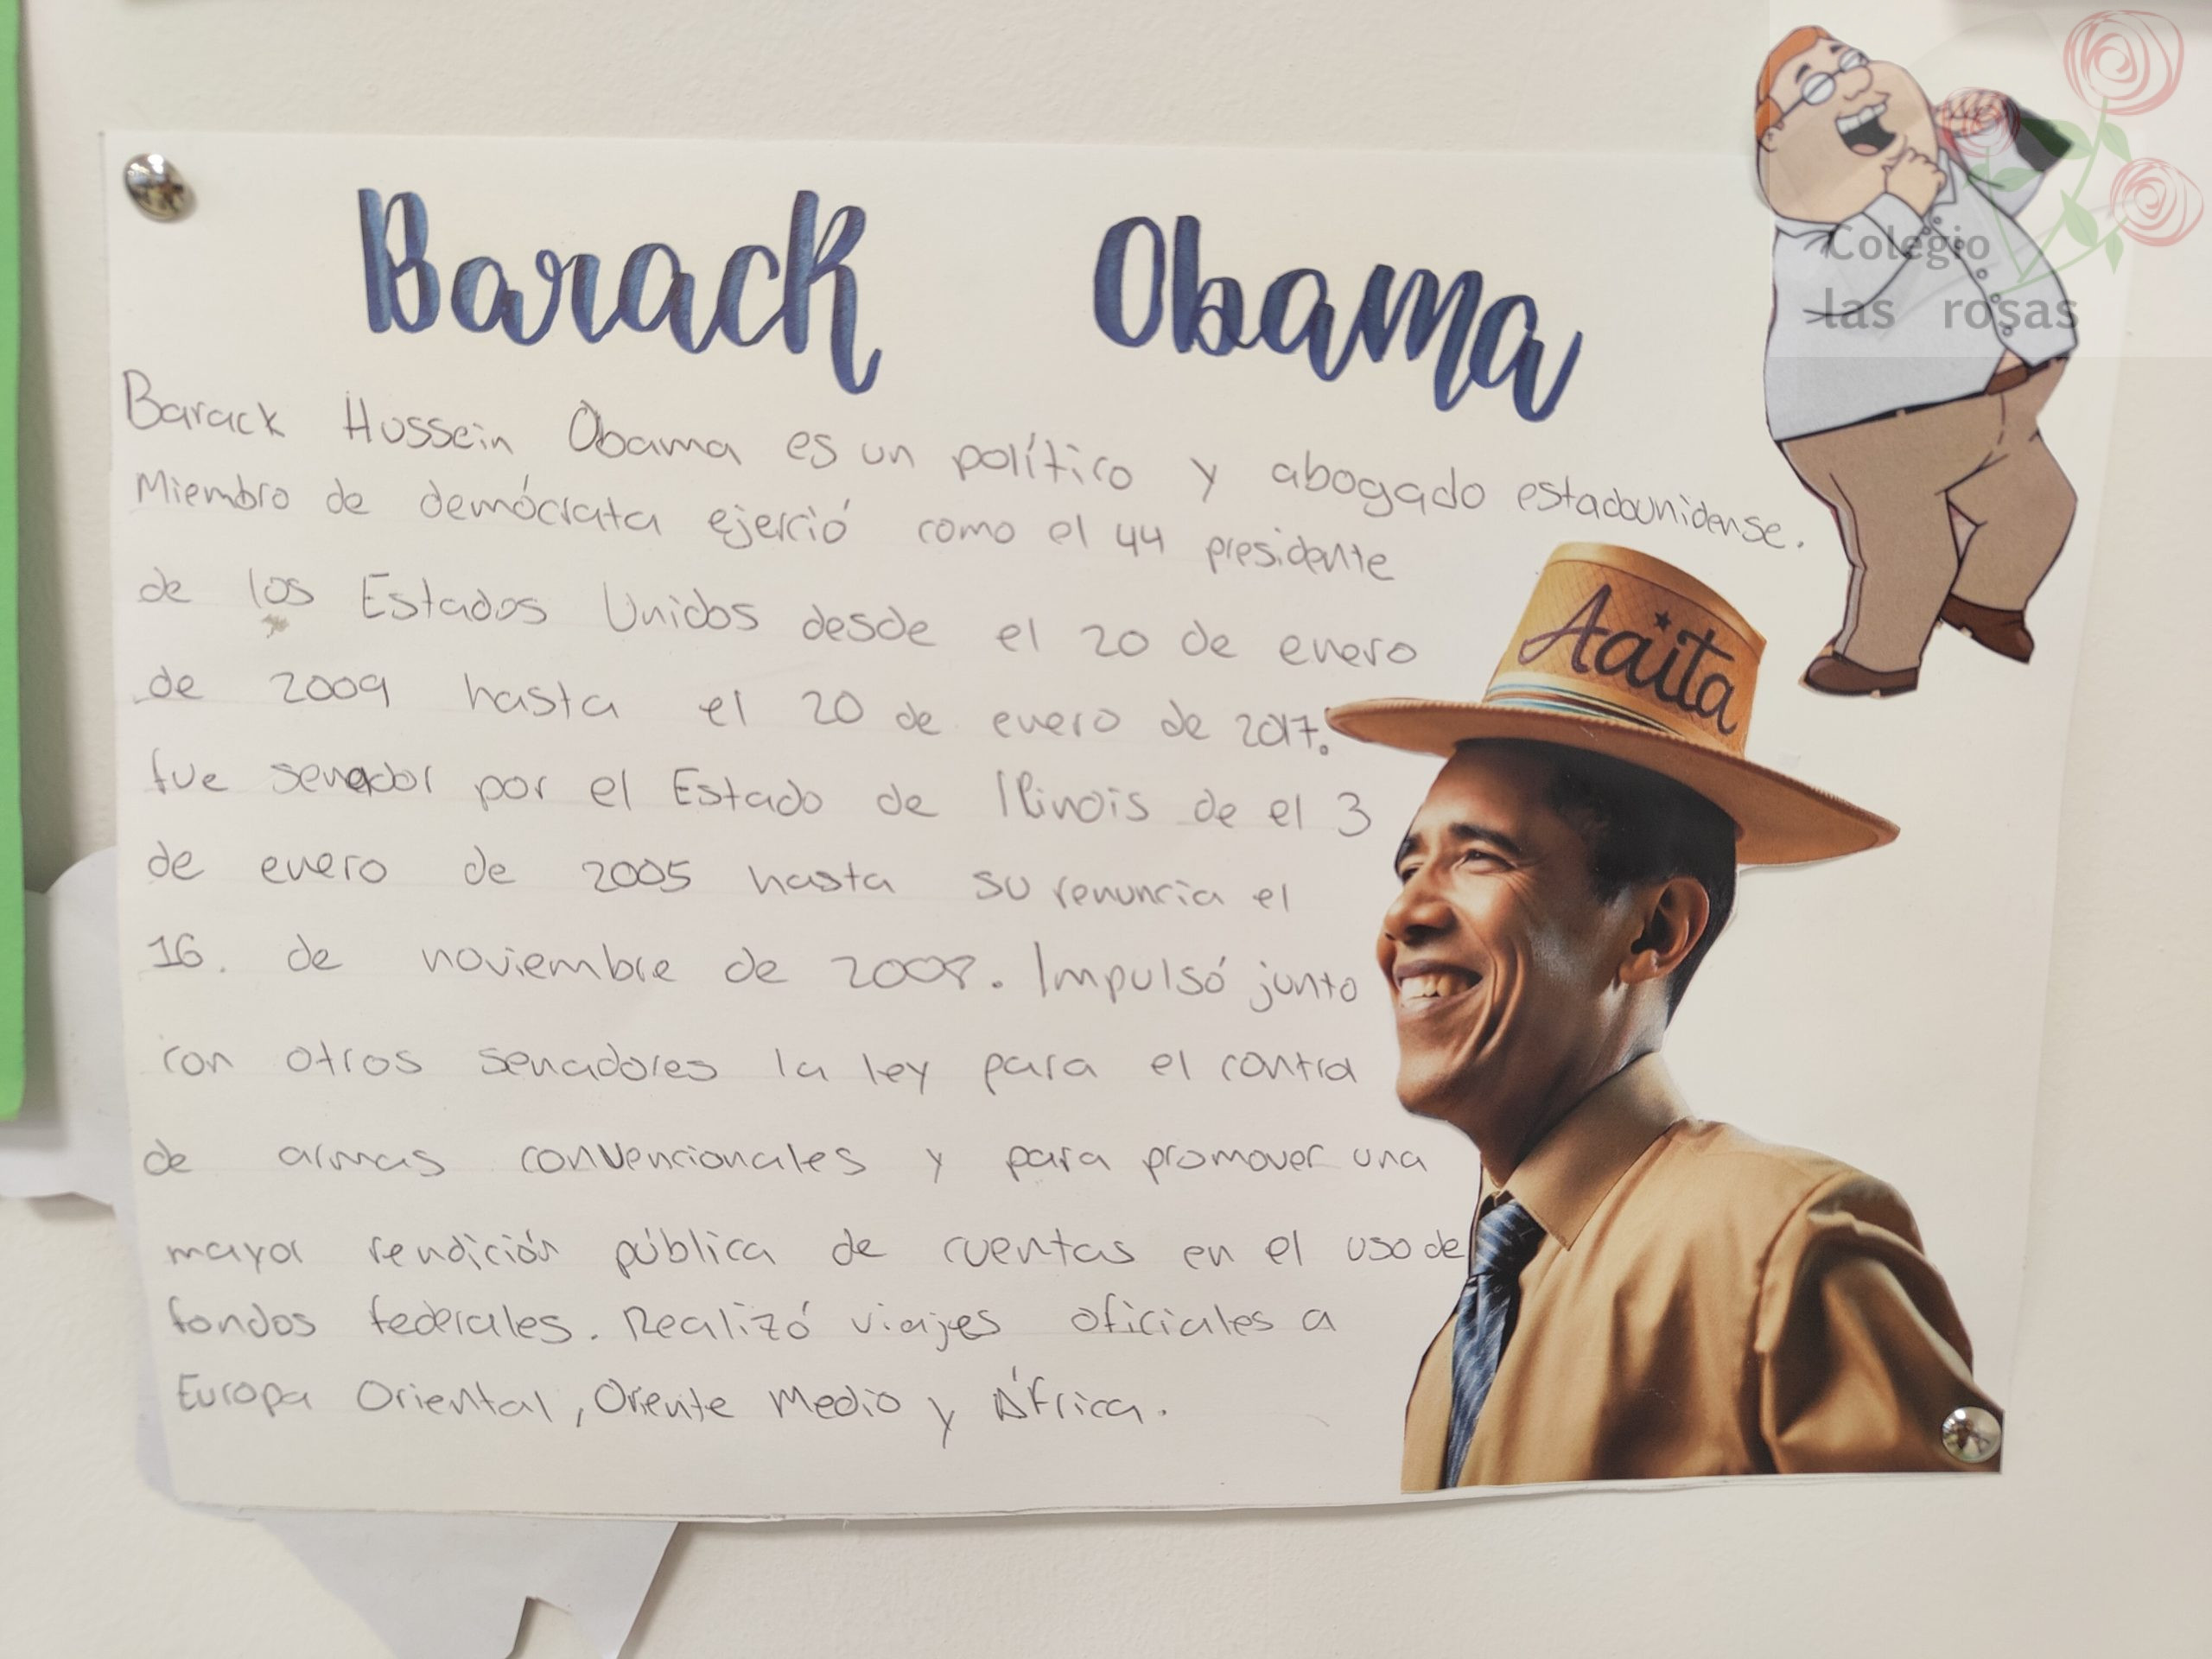 Barack Obama
Colegio
las rosas
Barack Hussein Obama es un político y abogado estadounidense.
Miembro de demócrata ejerció como el 44 presidente
de los Estados Unidos desde el 20 de enero
de 2009 hasta el 20 de enero de 2017.
fue senador por el Estado de Ilinois de el 3
de enero de 2005 hasta su renuncia el
16. de noviembre de 2008. Impulsó junto
con otros senadores la ley para el contra
de armas convencionales y para promover una
mayor rendición pública de cuentas en el uso de
fondos federales. Realizó viajes oficiales a
Europa Oriental, Oriente Medio y África.
Aaita